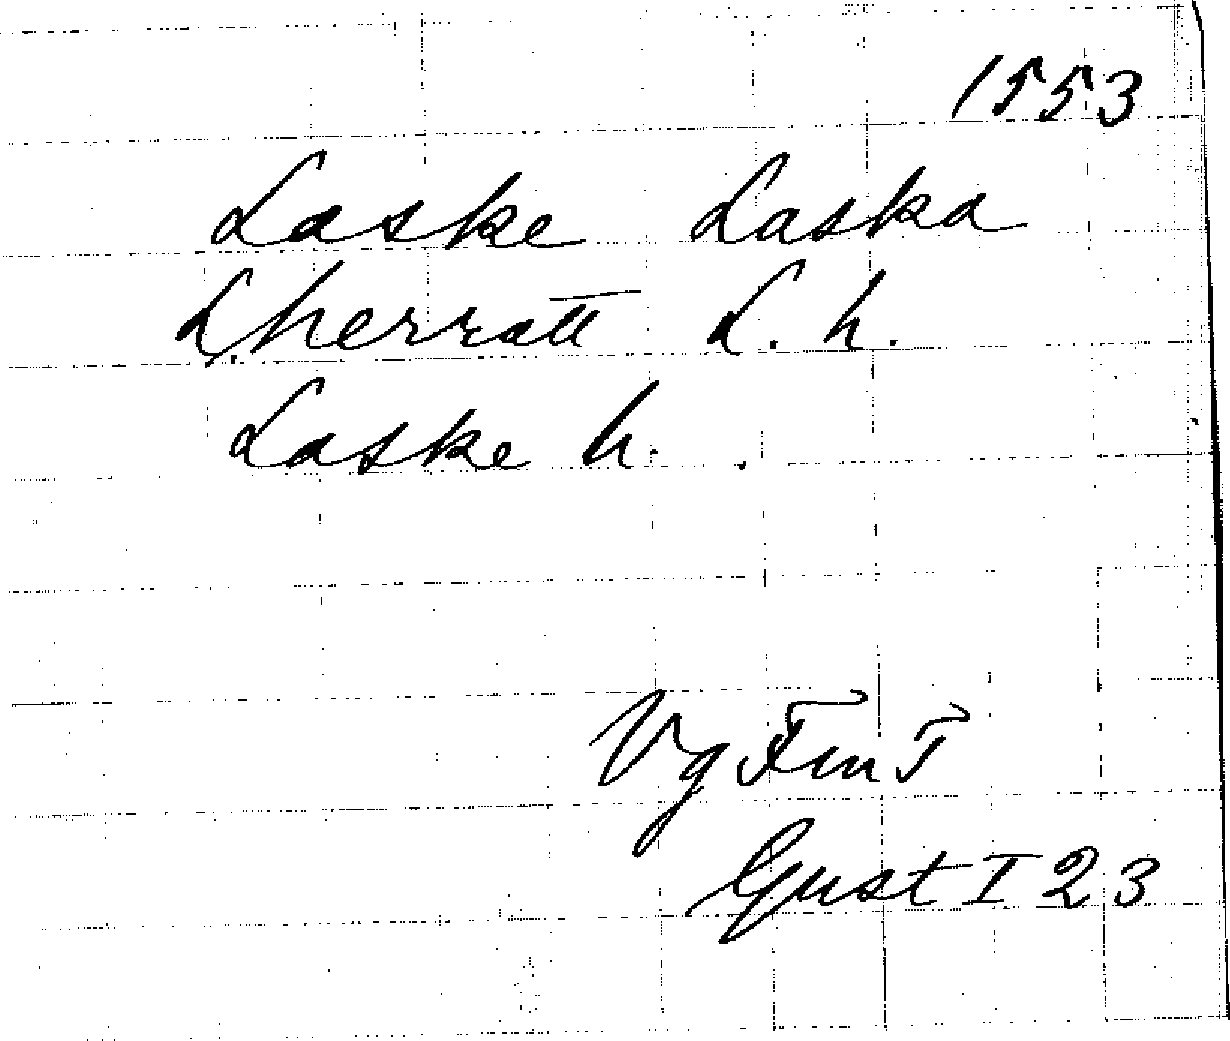 1553
Laske Laska
L,herratt L. h.
Laske h.
Vg Fm T
Gust I 23